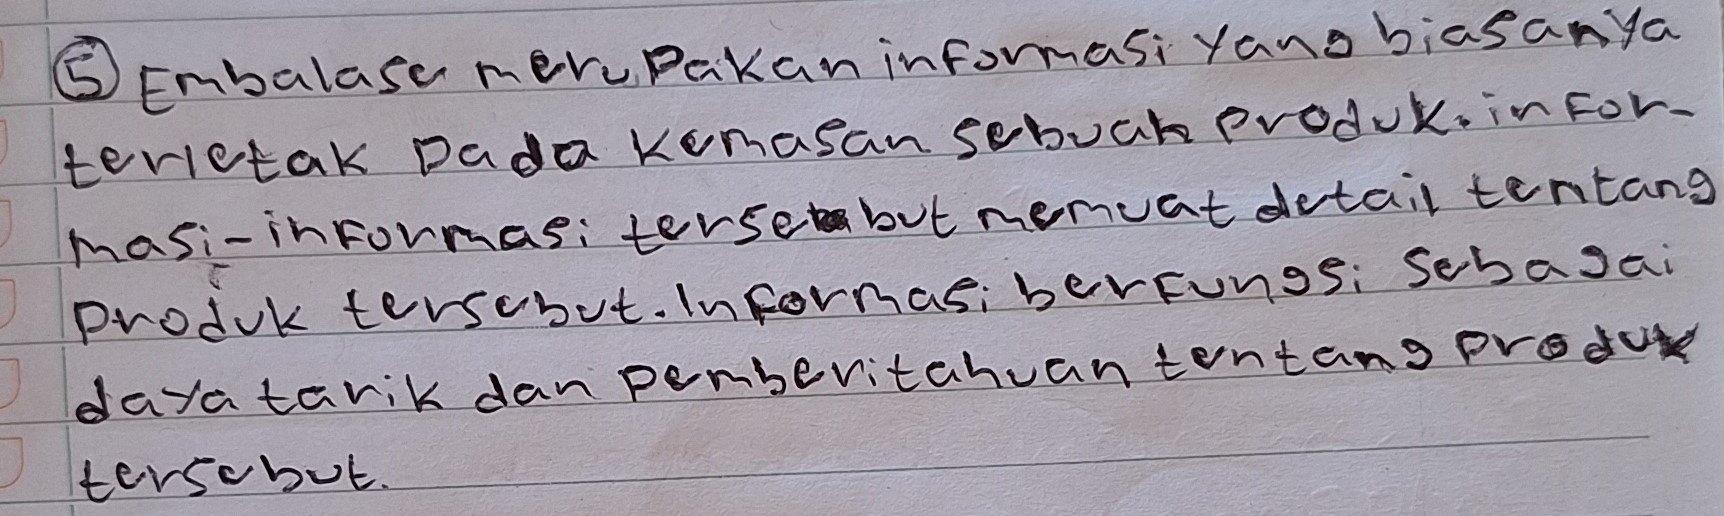 ⑤ Embalase merupakan informasi yang biasanya
terletak pada kemasan sebuah produk. infor-
masi-informasi tersebut memuat detail tentang
produk tersebut. Informasi berfungsi sebagai
daya tarik dan pemberitahuan tentang produk
tersebut.